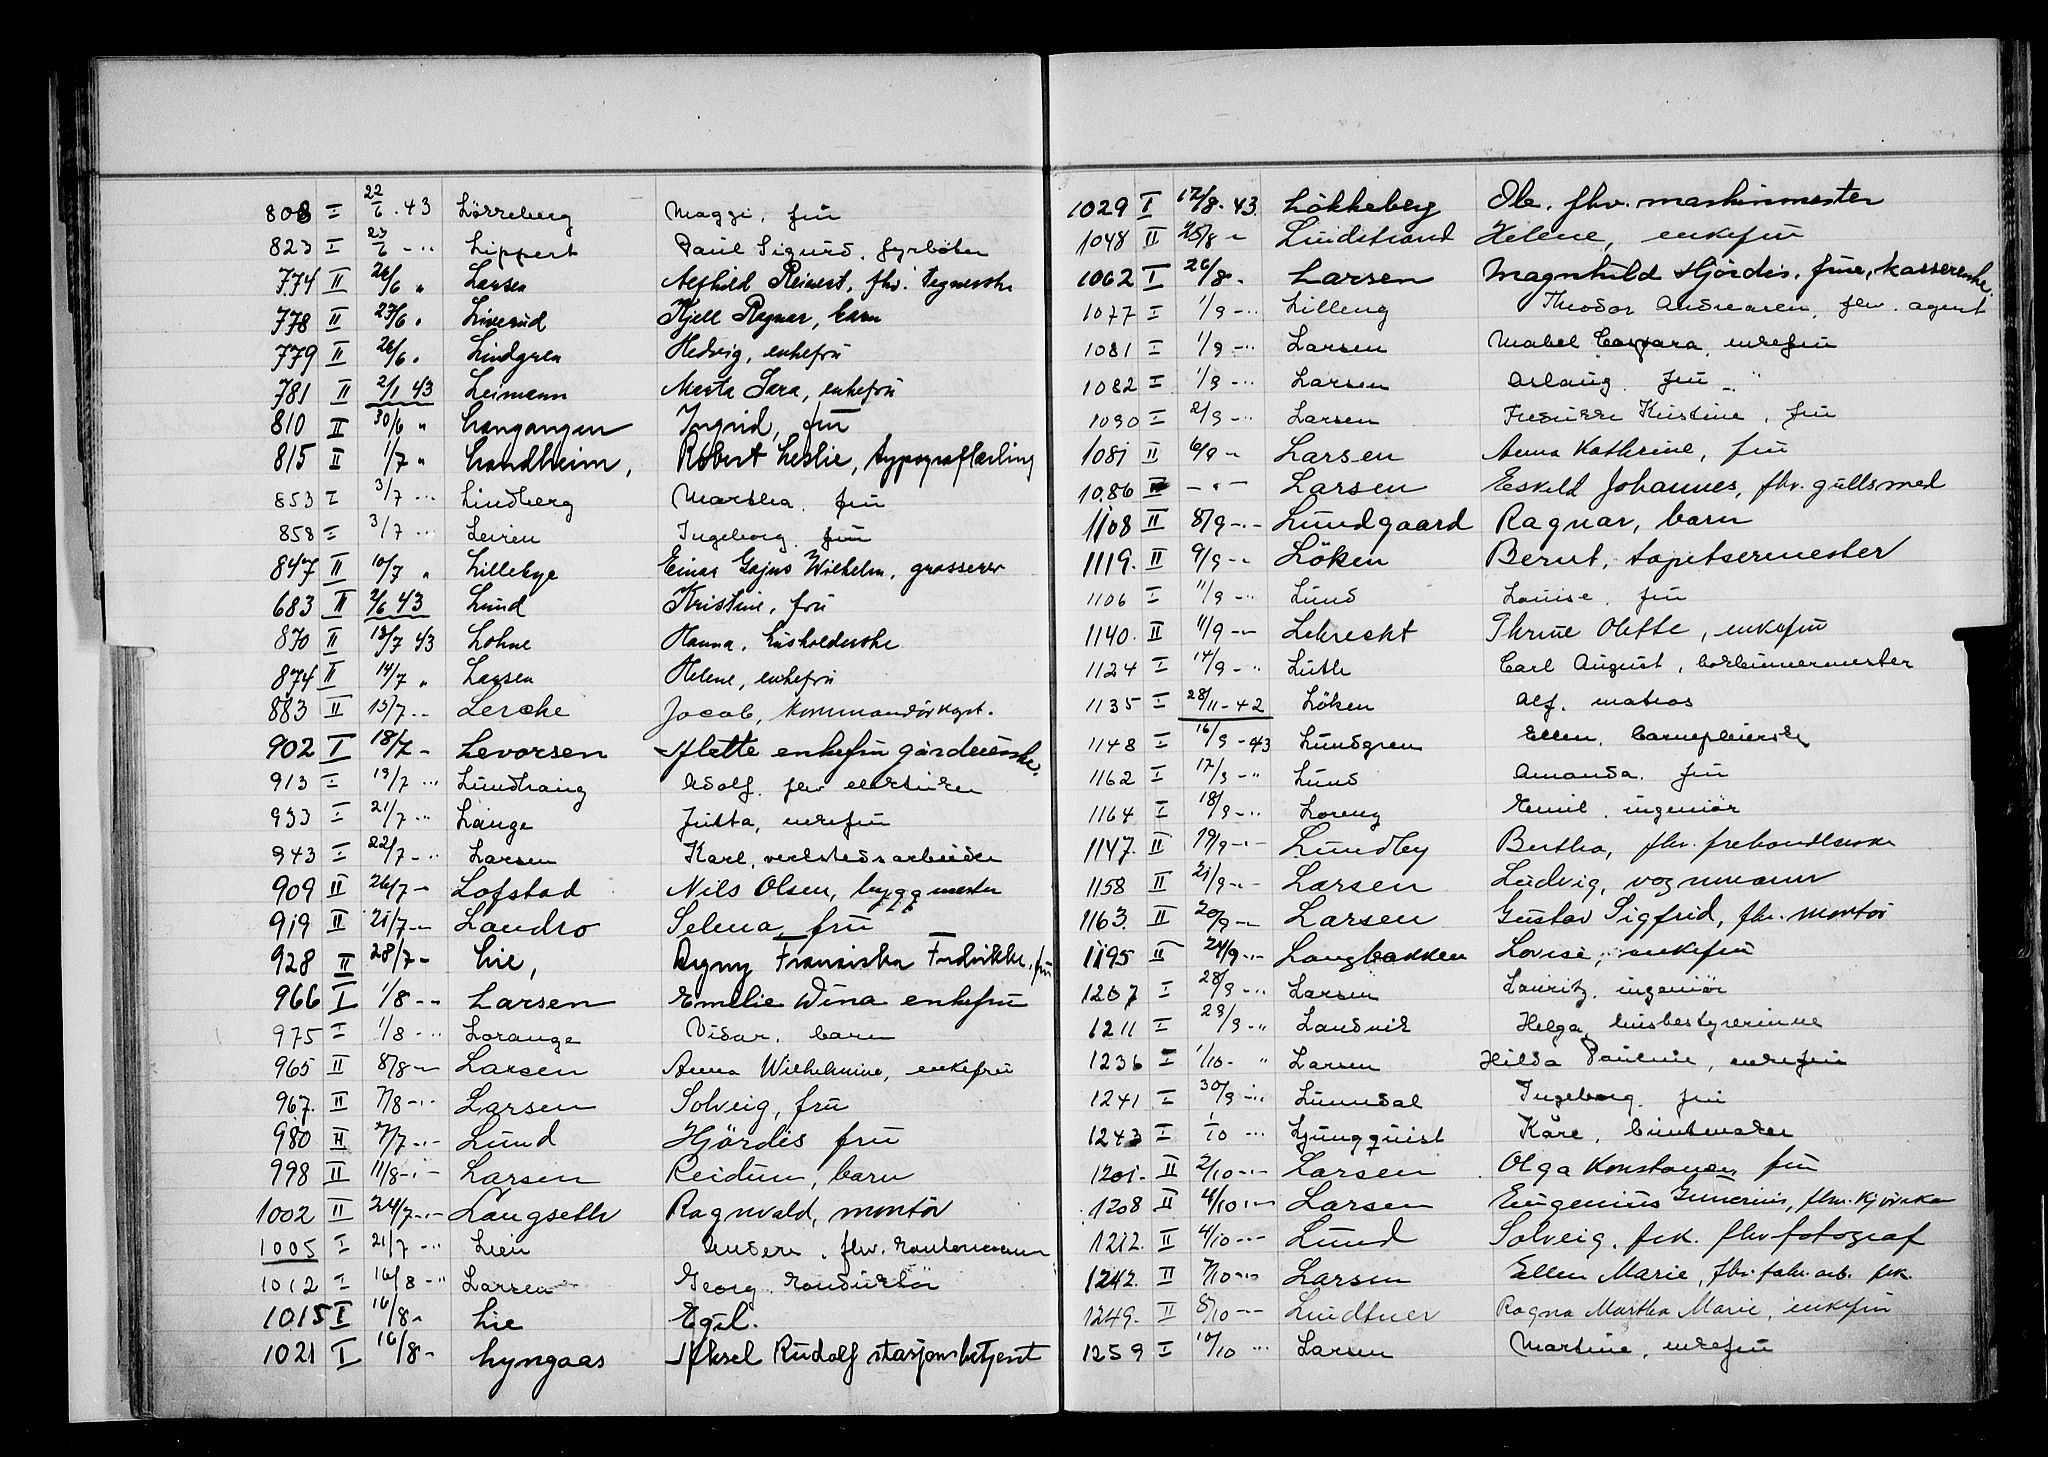 808 I 22/6 . 43 Lörreberg Maggi, frü
823 I 23/6 - " Lippert Paul Sigurd, fyrböter
774 II 26/6 " Larsen Alfhild Reinert, fhv. tegnerske
778 II 27/6 " Liverud Kjell Ragnar, barn
779 II 26/6 " Lindgren Hedvig, enkefrü
781 II 2/1 43 Leimann Marta Sara, enkefrü
810 II 30/6 " Langangen Ingrid, frü
815 II 1/7 " Landheim, Robert Leslie, typograflærling
853 I 3/7 - " Lindberg Martha, frü
858 I 3/7 - " Leiren Ingeborg, frü
847 II 10/7 " Lillebye Einar Gajus Wilhelm, grosserer
683 II 2/6 43 Lund Kristine, frü
870 II 13/7 43 Lohne Hanna, hüsholderske
874 II 14/7 " Larsen Helene, enkefrü
883 II 15/7 - - Lerche Jacob, kommandörkapt.
902 I 18/7 - Levorsen enkefrü
913 I 19/7 - " Adolf, fhv elektriker
933 I 21/7 - " Lange Jutta, enkefrü
943 I 22/7 - " Larsen Karl, verkstedsarbeider
909 II 26/7 - Lofstad Nils Olsen, byggmester
919 II 21/7 - Landro Selma, frü
928 II 28/7 - Lie, Dagny Fransiska Fredrikke, frü
966 I 1/8 - - Larsen Emelie Dina enkefrü
975 I 1/8 - " Lorange Vidar, barn
965 II 8/8 - Larsen Anna Wilhelmine, enkefrü
967. II 7/8 - " - Larsen Solveig, frü
980 II 7/7 - " - Lund Hjördis frü
998 II 11/8 - " - Larsen Reidun, barn
1002 II 24/7 - " - Langseth Ragnvald, montör
1005 I 21/7 - " Lien Anders, fhv. kontormann
1012 I 16/8 - " Larsen Georg, konduktör
1015 I 16/8 " Lie Egil.
1021 I 16/8 - Lyngaas Aksel Rudolf stasjonsbetjent
1029 I 17/8 . 43. Lökkeberg Ole, fhv. maskinmester
1048 II 25/8 - Lindstrand Helene, enkefrü
1062 I 26/8 . Larsen Magnhild Hjördis, frue, kassererske.
1077 I 1/9 - " Lilleng Theodor Andreasen, fhv. agent
1081 I 1/9 - " Larsen Mabel Caspara, enkefrü
1082 I 1/9 - " Larsen Aslaug, frü - "
1090 I 2/9 - " Larsen Fredrikke Kristine, frü
1081 II 6/9 - Larsen Anna Kathrine, frü
1086 II - " - Larsen Eskild Johannes, fhv. gullsmed
1108 II 8/9 - " - Lundgaard Ragnar, barn
1119. II 9/9 - - Löken Bernt, tapetsermester
1106 I 11/9 - " Lund Louise, frü
1140. II 11/9 - - Lebrecht Thrine Olette, enkefrü
1124 I 14/9 - " Luth Carl August,
1135 I 28/11 - 42 Löken Alf, matros
1148 I 16/9 - 43 Lundgren Ellen, barnepleierske
1162 I 17/9 - " Lund Amanda, frü
1164 I 18/9 - " Lorenz Emil, ingeniör
1147. II 19/9 - " - Lundby Bertha, fhv. frehandlerske
1158 II 21/9 - " - Larsen Ludvig, vognmann
1163. II 20/9 - Larsen Gustav Sigfrid, fhv. montör
1195 II 24/9 - " - Langbakken Lovise, enkefrü
1207 I 28/9 - " Larsen Lauritz, ingeniör
1211 I 29/9 - " Landvik Helga, husbestyrerinne
1236 I 1/10 - " Larsen Hilda Pauline, enkefrü
1241 I 30/9 - " Lunndal Ingeborg, frü
1243 I 1/10 - " Ljungquist Kåre, buntmaker
1201. II 2/10 - " - Larsen Olga Konstance, frü
1208 II 4/10 - " - Larsen Eugenius Gunerius, fhv.
1212. II 4/10 - - - Lund Solveig, frk. fhv fotograf
1242. II 7/10 - " - Larsen Ellen Marie, fhv. fabr. arb. frk.
1249. II 8/10 - - - Lindtner Ragna Martha Marie, enkefrü
1259 I 10/10 " Larsen Martine, enkefrü